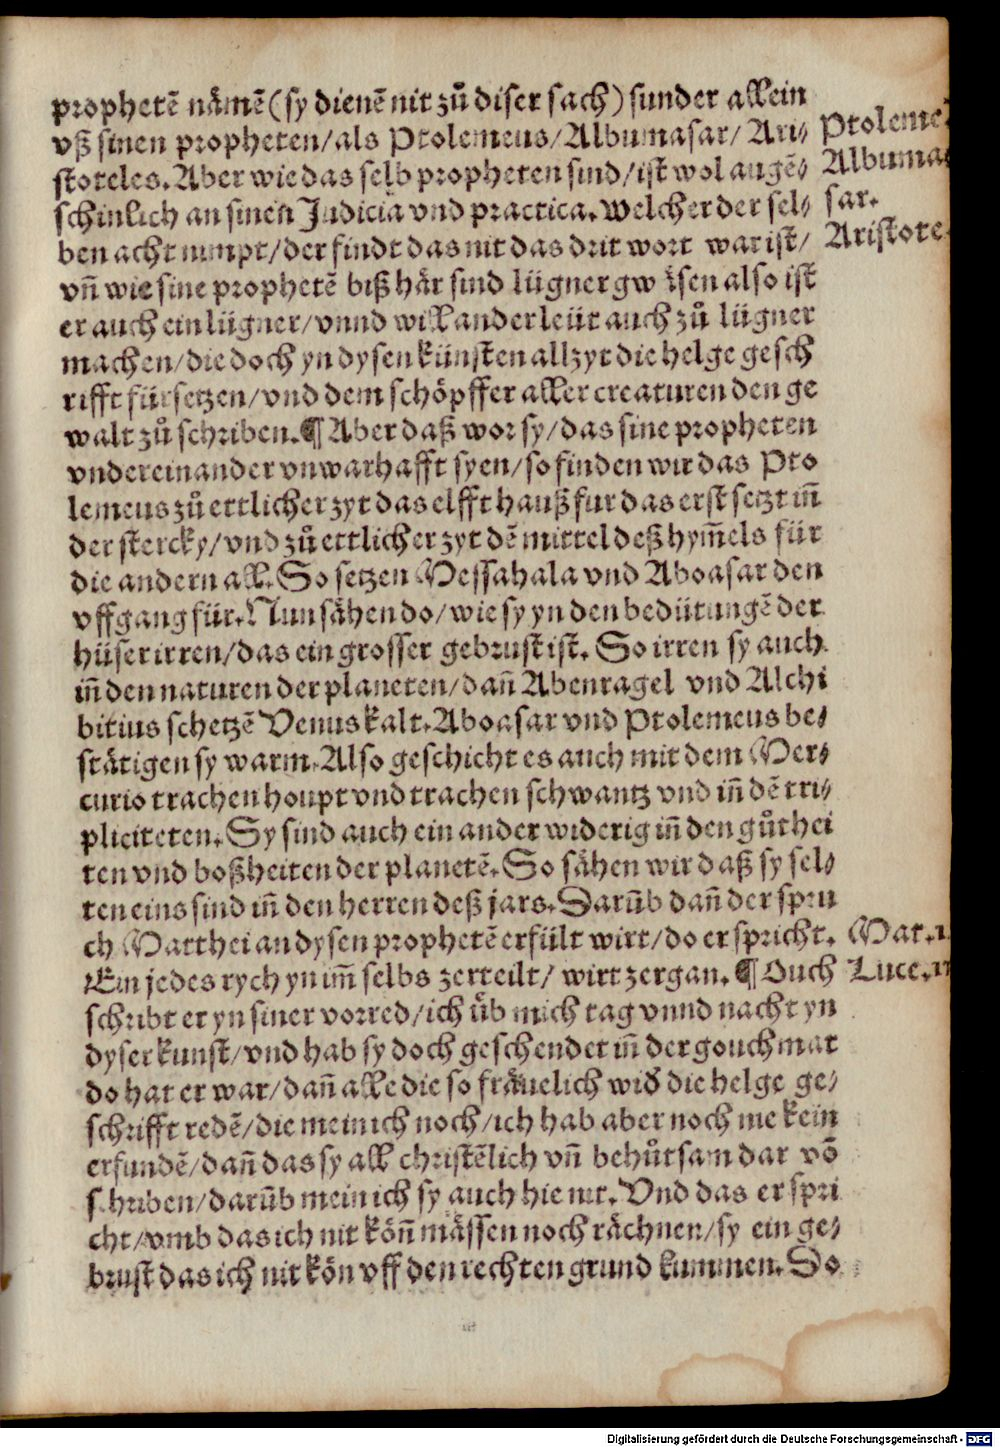 prophetē nämē (sy dienē nit zů diser sach) sunder allein
vß sinen propheten/als Ptolemeus/Albumasar/ Ari⸗
stoteles. Aber wie das selb propheten sind/ist wol augē⸗
schinlich an sinen Judicia vnd practica. Welcher der sel⸗
ben acht nimpt/der findt das nit das drit wort war ist/
vñ wie sine prophetē biß här sind lügner gwäsen also ist
er auch ein lügner/vnnd will ander leüt auch zů lügner
machen/die doch yn dysen künsten allzyt die helge gesch
rifft fürsetzen/vnd dem schöpffer aller creaturen den ge
walt zů schriben. ¶ Aber daß wor sy/das sine propheten
vndereinander vnwarhafft syen/so finden wir das Pto
lemeus zů ettlicher zyt das elfft hauß fur das erst setzt iñ
der stercky/vnd zů ettlicher zyt dē mittel deß hym̄els für
die andern all. So setzen Messahala vnd Aboasar den
vffgang für. Nun sähen do/wie sy yn den bedütungē der
hüser irren/das ein grosser gebrust ist. So irren sy auch
iñ den naturen der planeten/dañ Abenragel vnd Alchi
bitius schetzē Venus kalt. Aboasar vnd Ptolemeus be⸗
stätigen sy warm. Also geschicht es auch mit dem Mer⸗
curio trachen houpt vnd trachen schwantz vnd iñ dē tri⸗
pliciteten. Sy sind auch ein ander widerig iñ den gůthei
ten vnd boßheiten der planetē. So sähen wir daß sy sel⸗
ten eins sind iñ den herren deß jars. Darūb dañ der spru
ch Matthei an dysen prophetē erfült wirt/do er spricht.
Ein jedes rych yn im̄ selbs zerteilt/ wirt zergan. ¶ Ouch
schribt er yn siner vorred/ich ůb mich tag vnnd nacht yn
dyser kunst/vnd hab sy doch geschendet iñ der gouchmat
do hat er war/dañ alle die so fräuelich wid die helge ge⸗
schrifft redē/die mein ich noch/ich hab aber noch nie kein
erfundē/dañ das sy all christēlich vñ behůtsam dar vō
schriben/darūb mein ich sy auch hie nit. Vnd das er spri
cht/vmb das ich nit köñ mässen noch rächnen/sy ein ge⸗
brust das ich nit kön vff den rechten grund kummen. Do
Ptoleme⸗
Albuma⸗
sar.
Aristote⸗
Mat.1
Luce.1
Digitalisierung gefördert durch die Deutsche Forschungsgemeinschaft - DFG